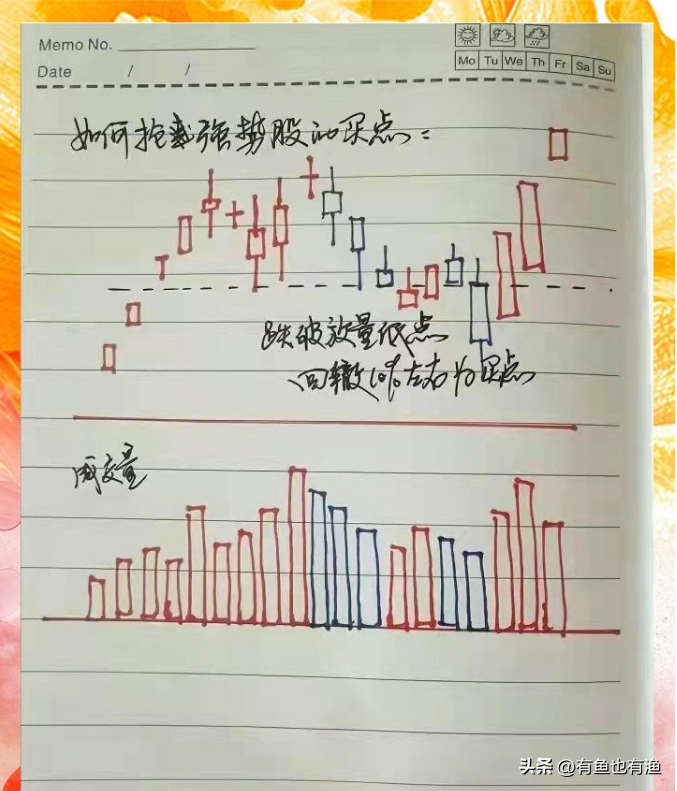 Memo No.
Date / /
Mo Tu We Th Fr Sa Su
如何抢截强势股的买点：
跌破放量低点
回辙10%左右为买点
成交量
头条 @有鱼也有渔